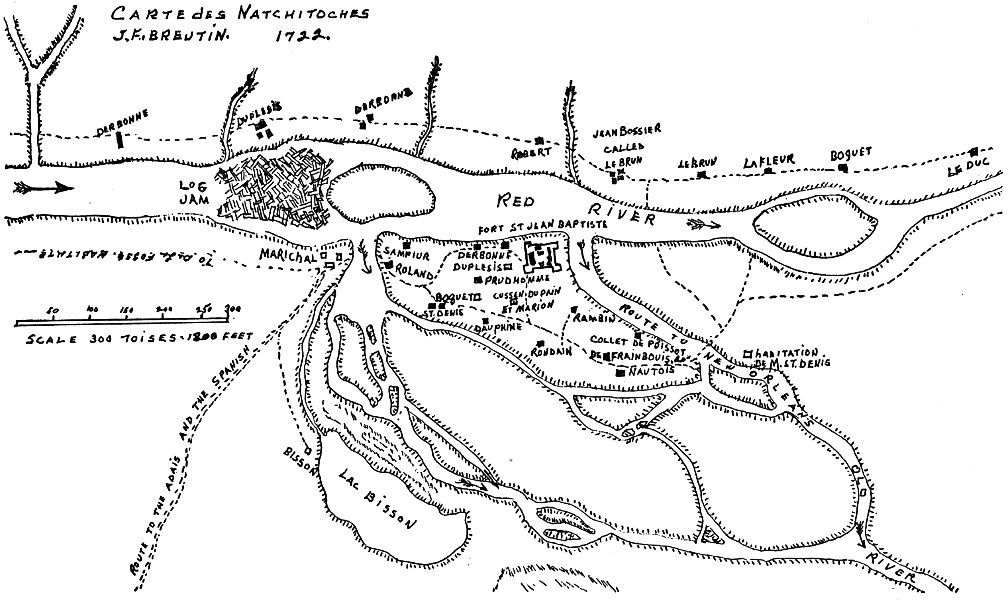 CARTE des NATCHITOCHES
J.F. BREUTIN. 1722.
DERBONNE
DUPLESIS
DERBONNE
ROBERT
JEAN BOSSIER
CALLED
LE BRUN
LE BRUN
LAFLEUR
BOQUET
LE DUC
LOG
JAM
RED RIVER
FORT ST JEAN BAPTISTE
MARICHAL
SAMPIUR
ROLAND
DERBONNE
DUPLESIS
PRUDHOMME
BOQUET
ST. DENIS
CUSSEN. DUPAIN
ET MARION
DAUPHINE
RAMBIN
RONDAIN
COLLET DE POISSOT
DE FRAINBOUIS
NAUTOIS
ROUTE TO NEW ORLEANS
HABITATION
DE M. ST. DENIS
50 100 150 200 250 300
SCALE 300 TOISES - 1800 FEET
ROUTE TO THE ADAIS AND THE SPANISH
BISSON
LAC BISSON
OLD RIVER